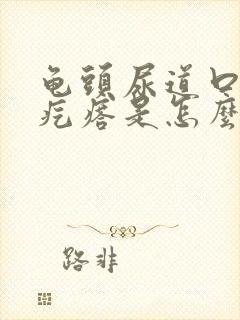 龟頭尿道口
疙瘩是怎麼
路非